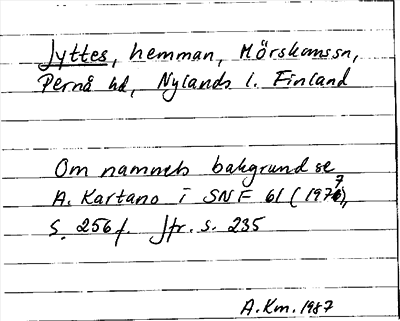 Jyttes, hemman, Mörskomssn,
Pernå hd, Nylands l. Finland
Om namnets bakgrund se
A. Kartano i SNF 61 (1977),
s. 256 f. Jfr. s. 235
A.Km. 1987